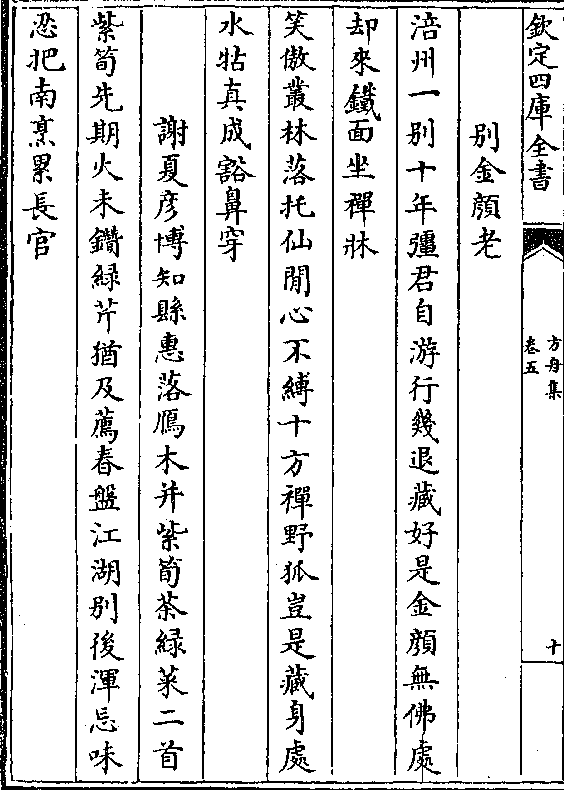 欽定四庫全書
方舟集
卷五
十
别金顔老
涪州一别十年彊君自游行幾退藏好是金顔無佛處
却來鐵面坐禪牀
笑傲叢林落托仙閒心不縛十方禪野狐豈是藏身處
水牯真成豁鼻穿
謝夏彦博知縣惠落鴈木并紫筍茶緑菜二首
紫筍先期火未鑽緑芹猶及薦春盤江湖别後渾忘味
忍把南烹累長官